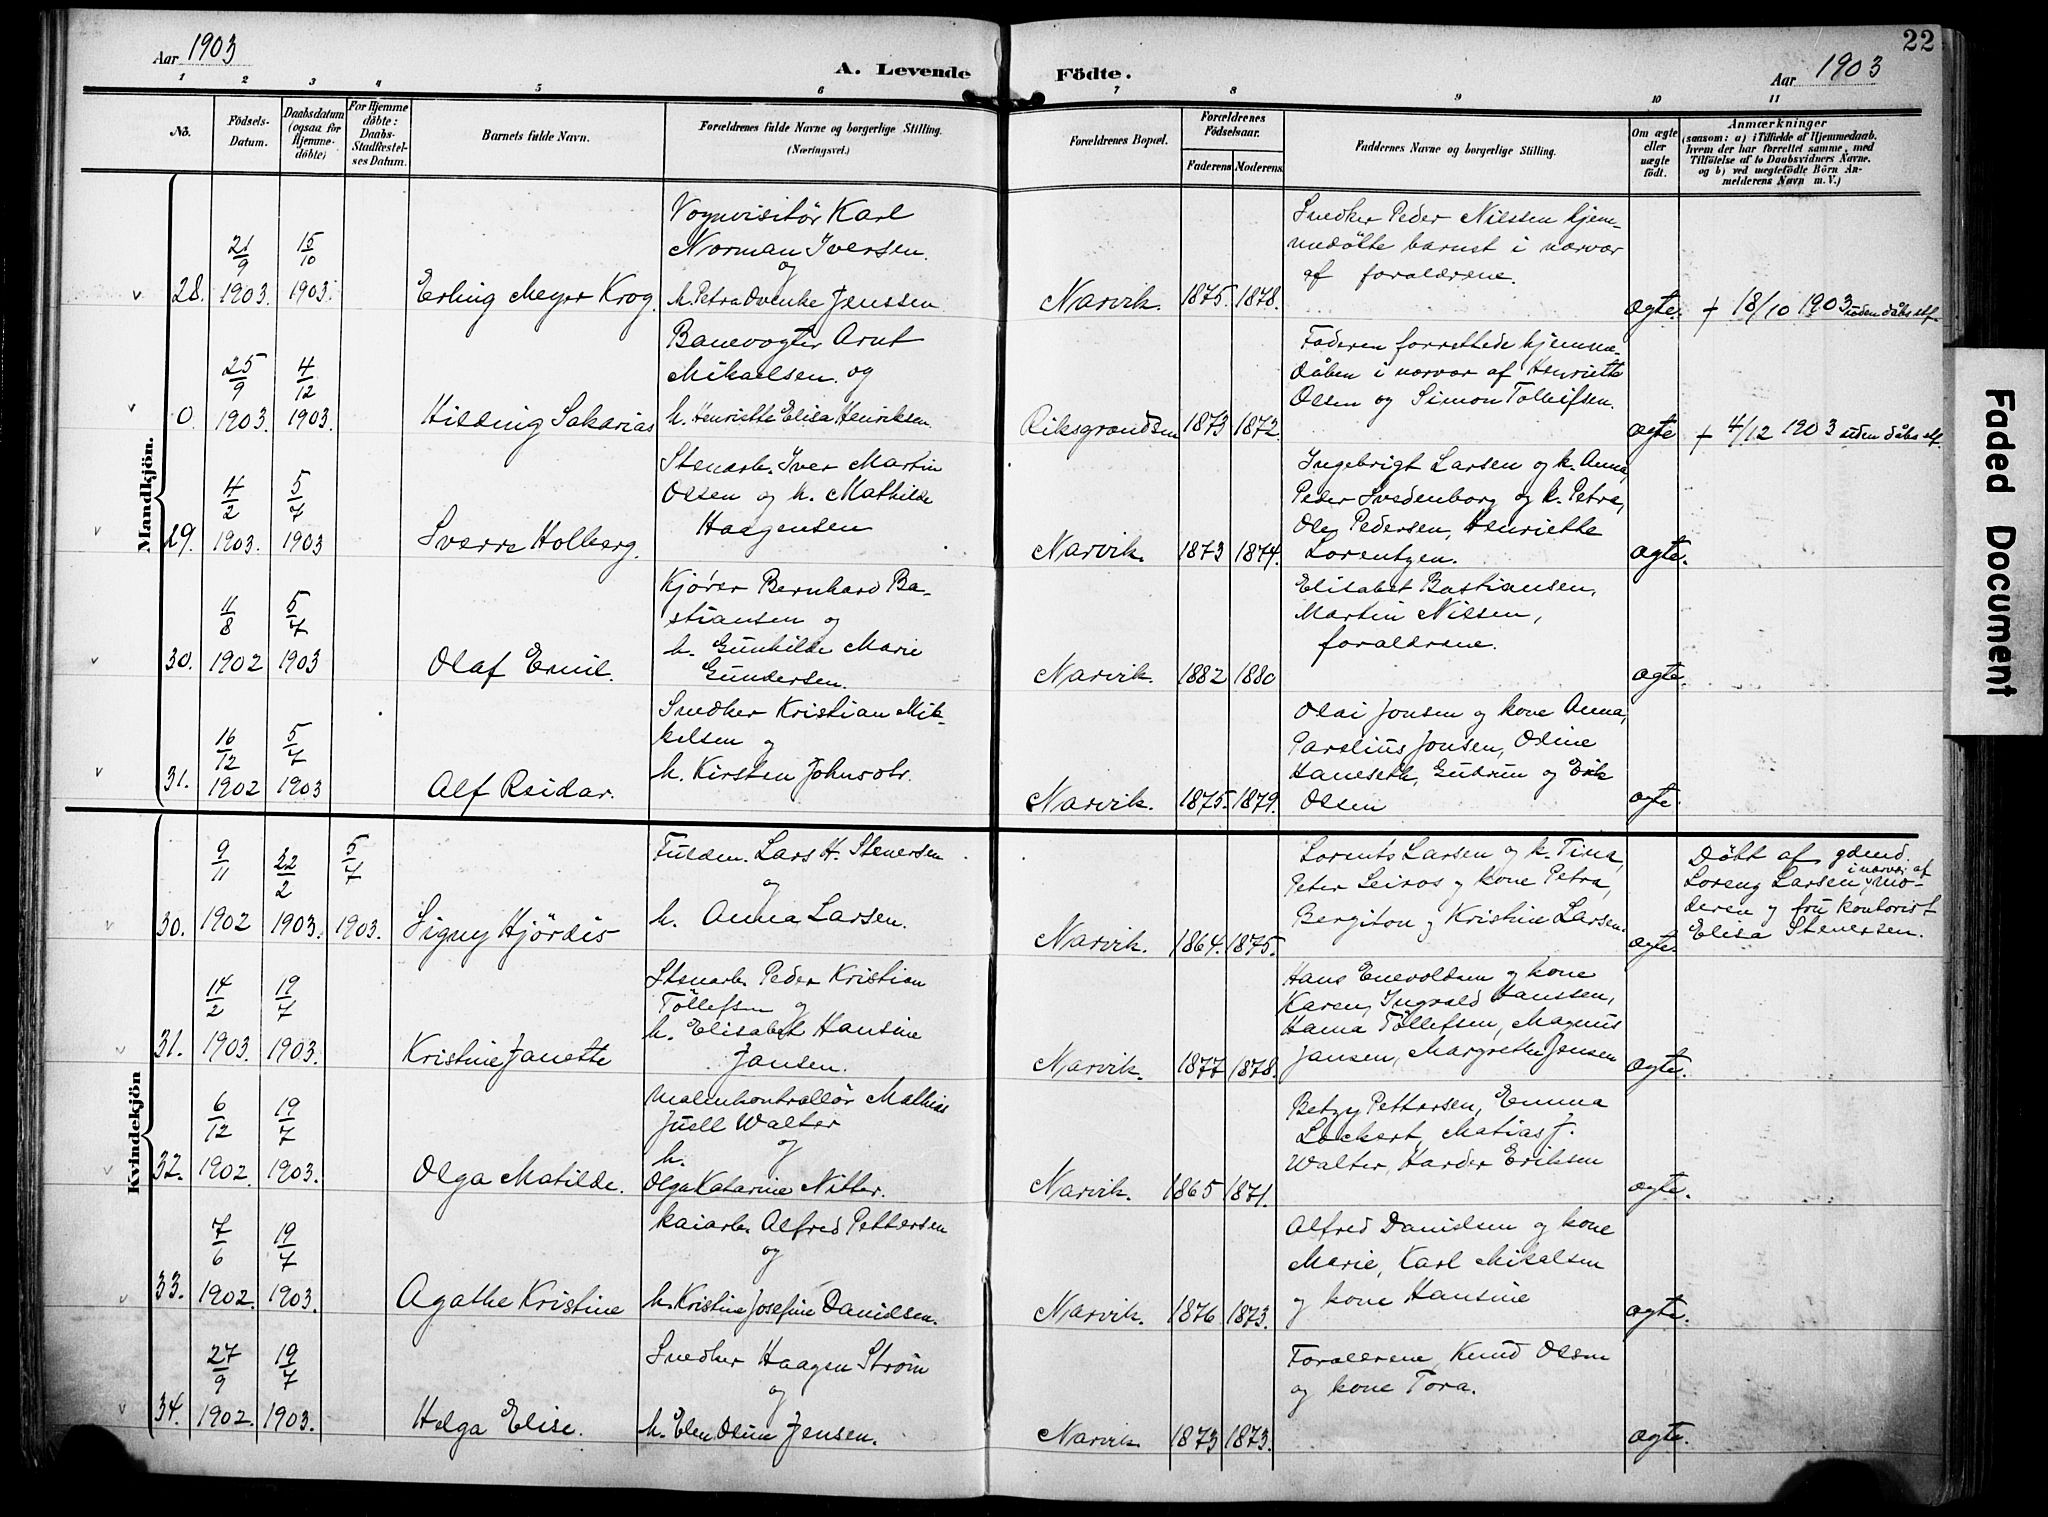 Aar 1903
A. Levende Födte.
Aar 1903
22
1 2 3 4 5 6 7 8 9 10 11
No.
Födsels-
Datum.
Daabsdatum
(ogsaa for
Hjemme-
döbte)
For Hjemme
döbte:
Daabs-
Stadfæstel-
ses Datum.
Barnets fulde Navn.
Forældrenes fulde Navne og borgerlige Stilling.
(Næringsvei.)
Forældrenes Bopæl.
Forældrenes
Födselsaar.
Faderens
Moderens.
Faddernes Navne og borgerlige Stilling.
Om ægte
eller
uægte
födt.
Anmærkninger
(saasom: a) i Tilfælde af Hjemmedaab.
hvem der har forrettet samme, med
Tilföielse af to Daabsvidners Navne.
og b) ved uægtefödte Börn An-
melderens Navn m. V.)
Mandkjön.
28.
21/9 1903.
15/10 1903.
Erling Meyer Krog.
Vognvisitör Karl
Norman Iversen.
og
h. Petra Ovenke Jenssen
Narvik.
1875.
1878.
Snedker Peder Nilssen hjem-
medöbte barnet i nærvær
af forældrene.
ægte.
+ 18/10 1903 uden dåbs elf.
0
25/9 1903.
4/12 1903.
Hilding Sakarias
Banevogter Arnt
Mikaelsen og
h. Henriette Elisa Henriksen
Riksgrændsen
1873
1872.
Faderen forrettede hjemme-
dåben i nærvær af Henriette
Olsen og Simon Tollefsen.
ægte
+ 4/12 1903 uden dåbs elf.
29.
4/2 1903.
5/7 1903
Sverre Holberg.
Stenarb. Iver Martin
Olsen og h. Mathilde
Haagensen
Narvik.
1873
1874.
Ingebrigt Larsen og k. Anna,
Peder Svedenborg og k. Petra,
Ole Pedersen, Henriette
Lorentzen.
ægte.
30.
11/8 1902
5/7 1903
Olaf Emil.
Kjører Bernhard Ba-
stiansen og
h. Gunhilde Marie
Gundersen.
Narvik.
1882
1880
Elisabet Bastiansen,
Martin Nilsen,
forældrene.
ægte.
31.
16/12 1902
5/7 1903
Alf Reidar.
Snedker Kristian Mik-
kelsen og
h. Kirsten Johnsdtr.
Narvik.
1875.
1879.
Olai Jonsen og kone Anna,
Parelius Jonsen, Odine
Haneseth, Gudrun og Erik
Olsen
ægte.
Kvindekjön
30.
9/11 1902
22/2 1903.
5/7 1903.
Signy Hjördis
Fuldm. Lars H. Stenersen
og
h. Anna Larsen.
Narvik.
1864.
1875.
Lorents Larsen og k. Tina,
Peter Leiros og kone Petra,
Bergiton og Kristine Larsen.
ægte.
Döbt af gdmd.
Loreng Larsen i nærvær af mo-
deren og fru kontorist
Elisa Stenersen.
31.
14/2 1903.
19/7 1903.
Kristine Janette
Stenarb. Peder Kristian
Töllefsen og
h. Elisabet Hansine
Jansen.
Narvik.
1877
1878.
Hans Enevoldsen og kone
Karen, Ingvald Hanssen,
Hanna Töllefsen, Magnus
Jansen, Margrethe Jensen
ægte.
32.
6/12 1902.
19/7 1903.
Olga Matilde.
Malmkontrollör Mathias
Juell Walter
og
h.
Olga Katarine Nitter.
Narvik.
1865
1871.
Betzy Pettersen, Emma
Lockert, Matias J.
Walter, Harder Eriksen
ægte.
33.
7/6 1902.
19/7 1903.
Agathe Kristine
Kaiarb. Alfred Pettersen
og
h. Kristine Josefine Danielsen.
Narvik.
1876
1873.
Alfred Danielsen og kone
Marie, Karl Mikalsen
og kone Hansine
ægte.
34.
27/9 1902.
19/7 1903.
Helga Elise.
Snedker Haagen Strøm
og
h. Elen Oline Jensen.
Narvik
1873
1873.
Forældrene, Knud Olsen
og kone Tora.
ægte.
Faded Document